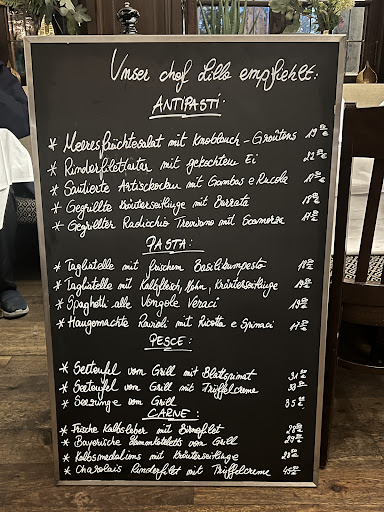 Unser chef Lillo empfiehlt:
ANTIPASTI:
* Meeresfrüchtesalat mit Knoblauch-Croûtons 19
* Rinderfilettartar mit gekochtem Ei 22
* Sautierte Artischocken mit Gambas e Rucola
* Gegrillte Kräuterseitlinge mit Burrata 18
* Gegrillter Radicchio Trevisano mit Scamorza 17
PASTA:
* Tagliatelle mit frischem Basilikumpesto
* Tagliatelle mit Kalbfleisch, Mohn, Kräuterseitlinge 19
* Spaghetti alle Vongole Veraci 19
* Hausgemachte Ravioli mit Ricotta e Spinaci 17
PESCE:
* Seeteufel vom Grill mit Blattspinat 31
* Seeteufel vom Grill mit Trüffelcreme 33
* Seezunge vom Grill 35
CARNE:
* Frische Kalbsleber mit Birnefilet 28
* Bayerische vom Grill 29
* Kalbsmedalions mit Kräuterseitlinge 28
* Charolais Rinderfilet mit Trüffelcreme 45